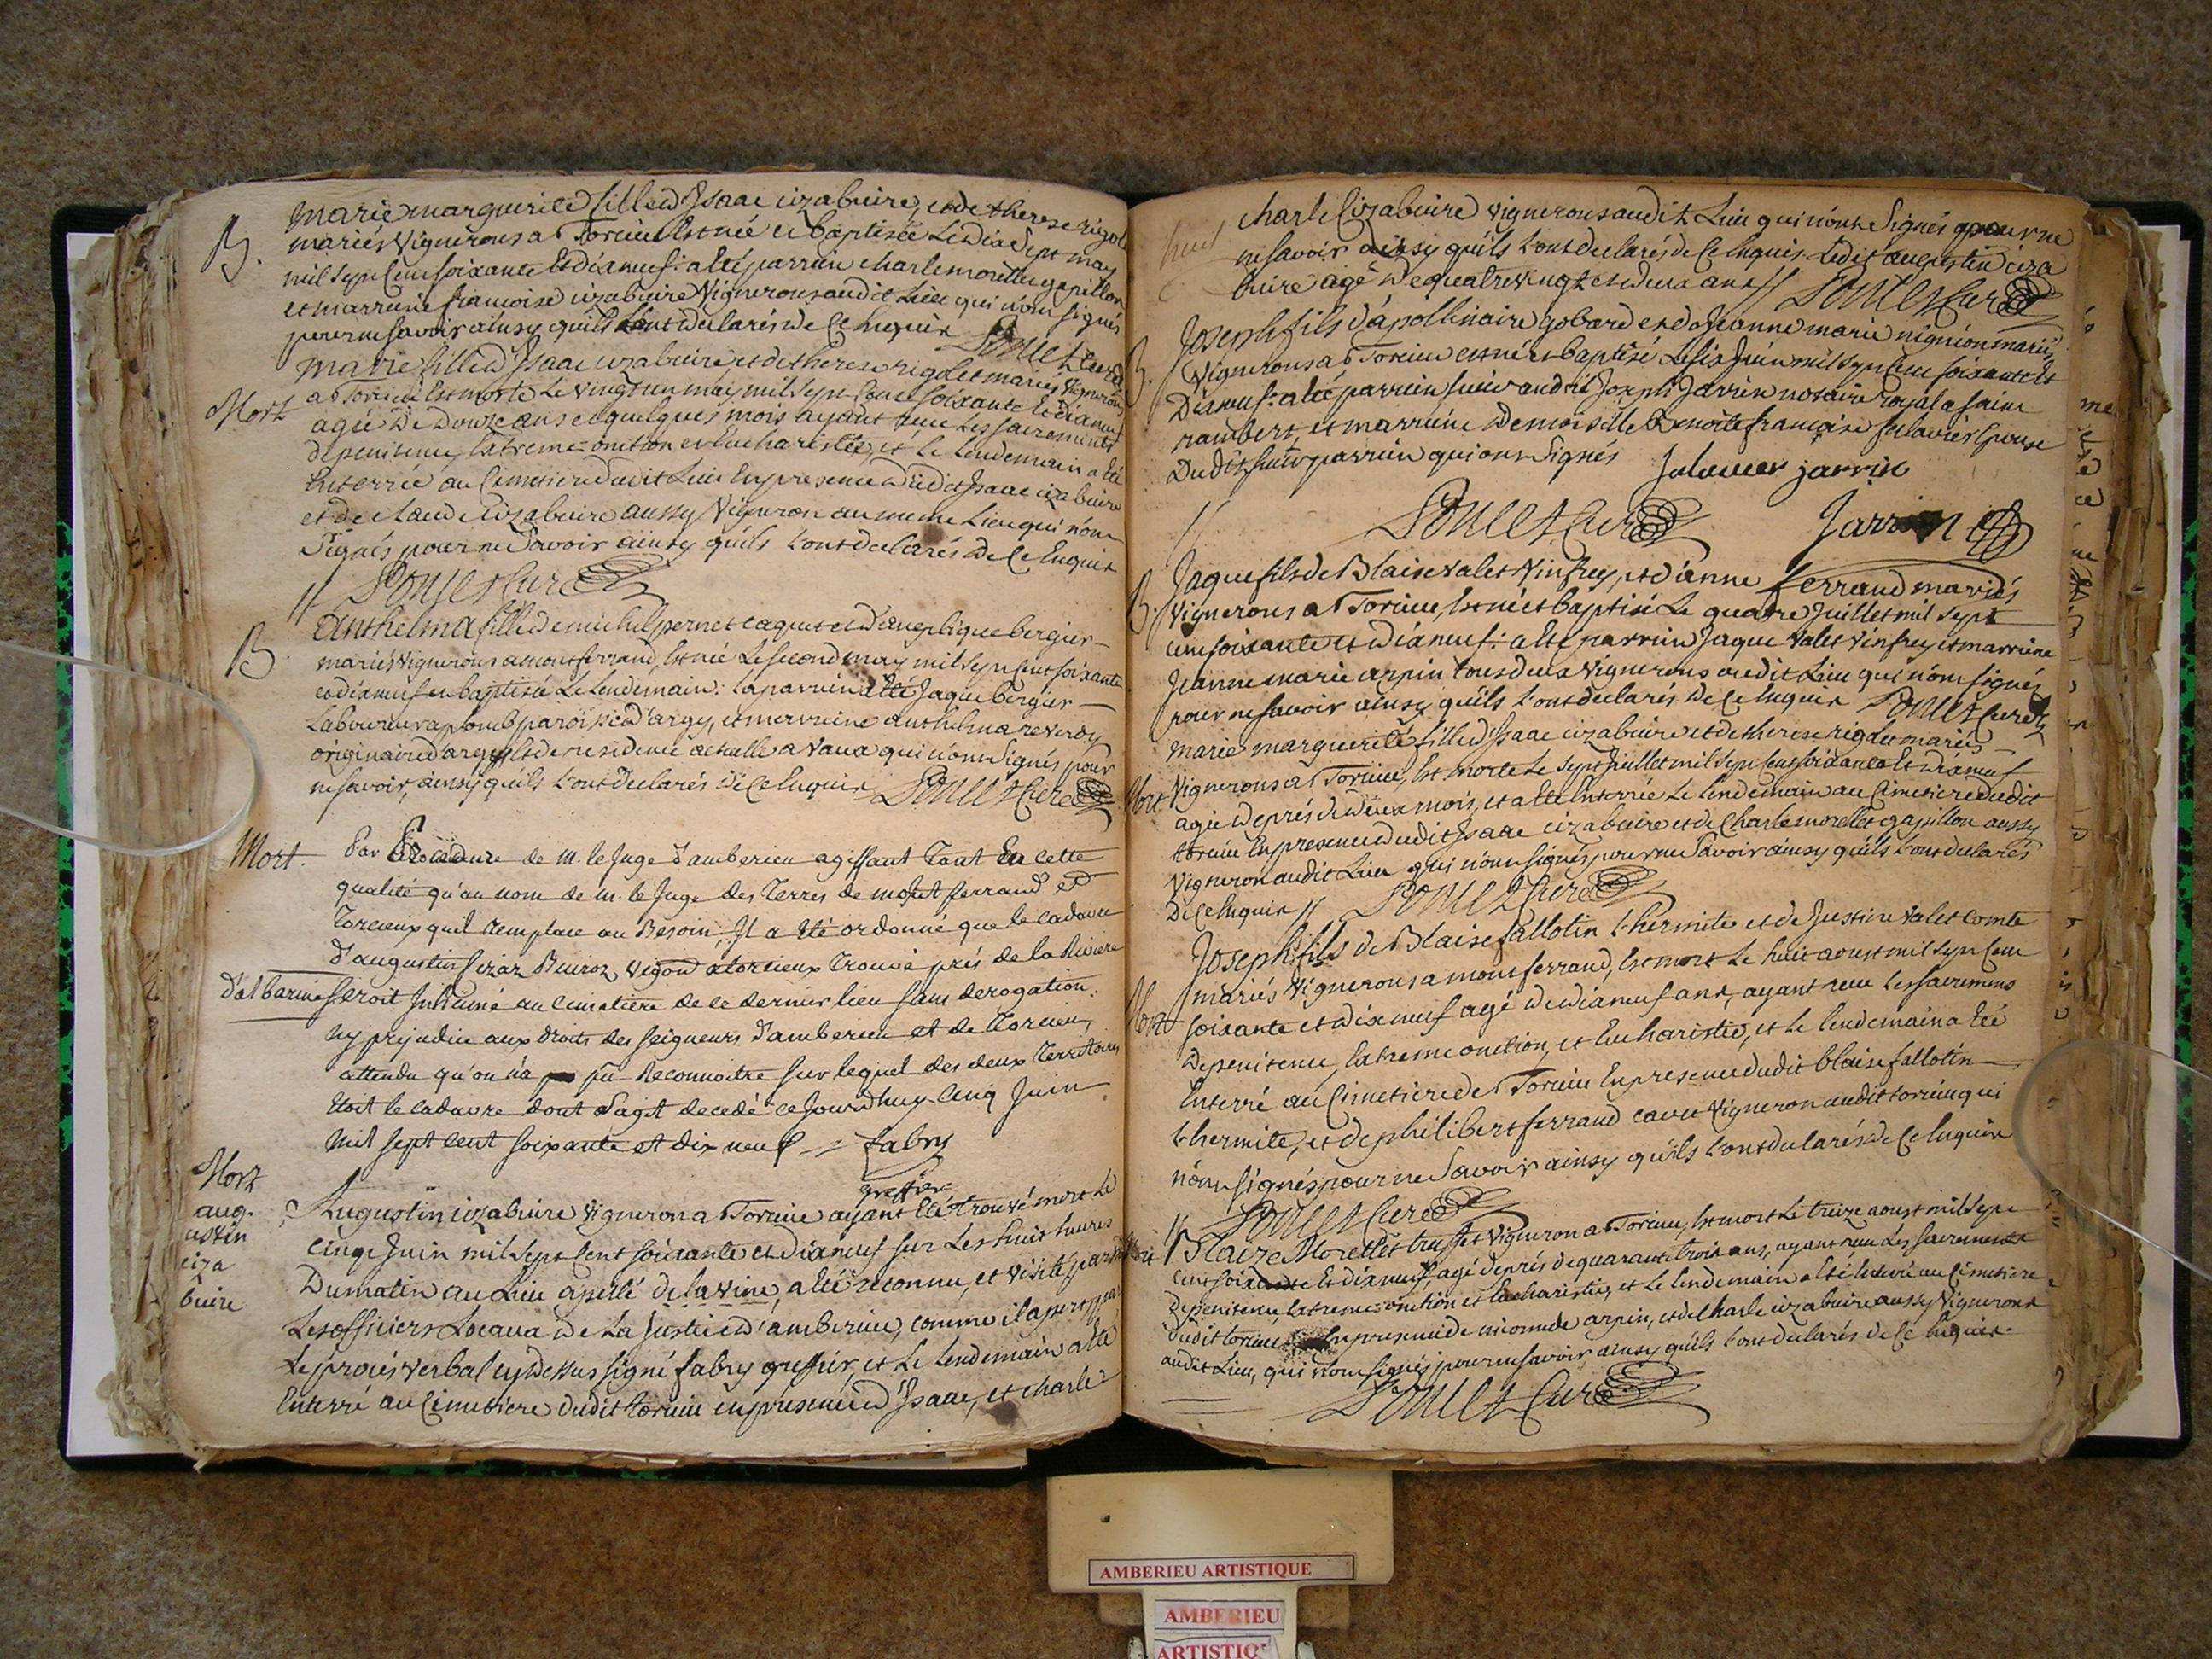 B. marie marguerite fille d'Isaac cizabuire, et de therese rigol
mariés vignerons a Torcieu Est née et Baptisée Le dix Sept may
mil sept Cent soixante Et dix neuf: a Eté parrain charle morellet gapillon
et marraine francoise cizabuire vignerons audit Lieu qui n'ont signés
pour ne savoir ainsy qu'ils L'ont declarés de Ce Enquis Ponset Curé
marie fille d'Isaac cizabuire et de therese rigolet mariés vignerons
a Torcieu Est morte Le vingt un may mil sept Cent soixante Et dix neuf
Mort agée de Douze ans et quelques mois ayant reçu Les sacrements
de penitence, Extreme-onction et Eucharistie, et Le Lendemain a Eté
Enterrée au Cimetiere dudit Lieu En presence dudit Isaac cizabuire
et de Claude cizabuire aussy Vigneron au meme Lieu qui n'ont
Signés pour ne Savoir ainsy qu'ils L'ont declarés de Ce Enquis
// Ponset Curé
B Anthelma fille de michel pernet caquet et d'anne plique bergier
mariés Vignerons a montferrand, Est née Le second may mil sept Cent soixante
et dix neuf et baptisée Le Lendemain: Le parrain a Eté Jaque bergier
Laboureur a plomb paroisse d'argy, et marraine anthelma reverdy
originaire d'argy, Et de residence actuelle a Vaux qui n'ont Signés pour
ne savoir, ainsy qu'ils L'ont declarés de Ce Enquis Ponset Curé
Mort. Par Procedure de M. le Juge d'amberieu agissant Tant En cette
qualité qu'au nom de M. le Juge des Terres de montferrand et
Torcieux quil Remplace au Besoin, Il a Eté ordonné que le cadavre
d'augustin Sizaz Buiroz vigon a torcieux Trouvé près de la Riviere
d'albarine seroit Inhumé au Cimetière de ce dernier lieu sans derogation
ny prejudice aux droits des seigneurs d'amberieu et de Torcieu,
attendu qu'on n'a pu Reconnoitre sur lequel des deux Territoires
Etoit le cadavre dont S'agit decedé ce Jourd'huy cinq Juin
mil sept cent soixante et dix neuf = fabry
greffier
Mort
aug-
ustin
ciza
buire
Augustin cizabuire vigneron a Torcieu ayant Eté trouvé mort Le
cinq Juin mil Sept Cent soixante et dix neuf sur Les huit heures
Du matin au Lieu apellé de la Vine, a Eté reconnu, et visité par
Les officiers Locaux de La Justice d'amberieu, comme il apert par
Le procés verbal cy dessus signé fabry greffier, et Le Lendemain a Eté
Enterré au Cimetiere dudit torcieu en presence d'Isaac, et charle
charle Cizabuire vignerons audit Lieu qui n'ont Signés pour ne
ne savoir ainsy qu'ils L'ont declarés de Ce Enquis. Ledit augustin ciza
buire agé de quatre vingt et deux ans // Ponset Curé
B. Joseph fils d'apollinaire gobard et de Jeanne marie nignion mariés
Vignerons a Torcieu est né et baptisé Le six Juin mil sept Cent soixante Et
Dix neuf: a Eté parrain sieur andré Joseph Jarrin notaire royal a saint
rambert, et marraine demoiselle Benoite francoise Epouse
Dudit sieur parrain qui ont Signés Jalaver jarrin
// Ponset Curé Jarrin
B. Jaque fils de Blaise valet Vinfrey, et d'anne ferrand mariés
Vignerons a Torcieu, Est né et baptisé Le quatre Juillet mil Sept
cent soixante et dix neuf: a Eté parrain Jaque Valet Vinfrey et marraine
Jeanne marie arpin tous deux Vignerons audit Lieu qui n'ont signés
pour ne savoir ainsy qu'ils L'ont declarés de Ce Enquis Ponset Curé
marie marguerite fille d'Isaac cizabuire et de therese rigolet mariés
Mort Vignerons a Torcieu, Est morte Le sept Juillet mil sept Cent soixante Et dix neuf
agée de prés de deux mois, et a Eté Enterrée Le Lendemain au Cimetiere dudit
torcieu En presence dudit Isaac cizabuire et de Charle morellet gapillon aussy
Vigneron audit Lieu qui n'ont signés pour ne Savoir ainsy qu'ils L'ont declarés
De Ce Enquis // Ponset Curé
Joseph fils de Blaise fallotin L'hermite et de Justine valet comte
mariés Vignerons a montferrand, Est mort Le huit aoust mil sept Cent
Mort soixante et dix neuf agé de dix neuf ans, ayant reçu Les sacremens
De penitence, Extreme onction, et Eucharistie, et Le Lendemain a Eté
Enterré au Cimetiere de Torcieu En presence dudit blaise fallotin
L'hermite, et de philibert ferrand cavet Vigneron audit torcieu qui
n'ont signés pour ne Savoir ainsy qu'ils L'ont declarés de Ce Enquis
// Ponset Curé
Mort Blaize Morellet truffet Vigneron a Torcieu, Est mort Le treize aoust mil Sept
cent soixante Et dix neuf, agé de prés de quarante trois ans, ayant reçu Les sacrements
De penitence, Extreme-onction et Eucharistie, et Le Lendemain a Eté Enterré au Cimetiere
dudit torcieu En presence de nicomede arpin, et de Charle cizabuire aussy Vignerons
audit Lieu, qui n'ont signés pour ne savoir, ainsy qu'ils L'ont declarés de Ce Enquis
Ponset Curé
AMBERIEU ARTISTIQUE
AMBERIEU
ARTISTIQ